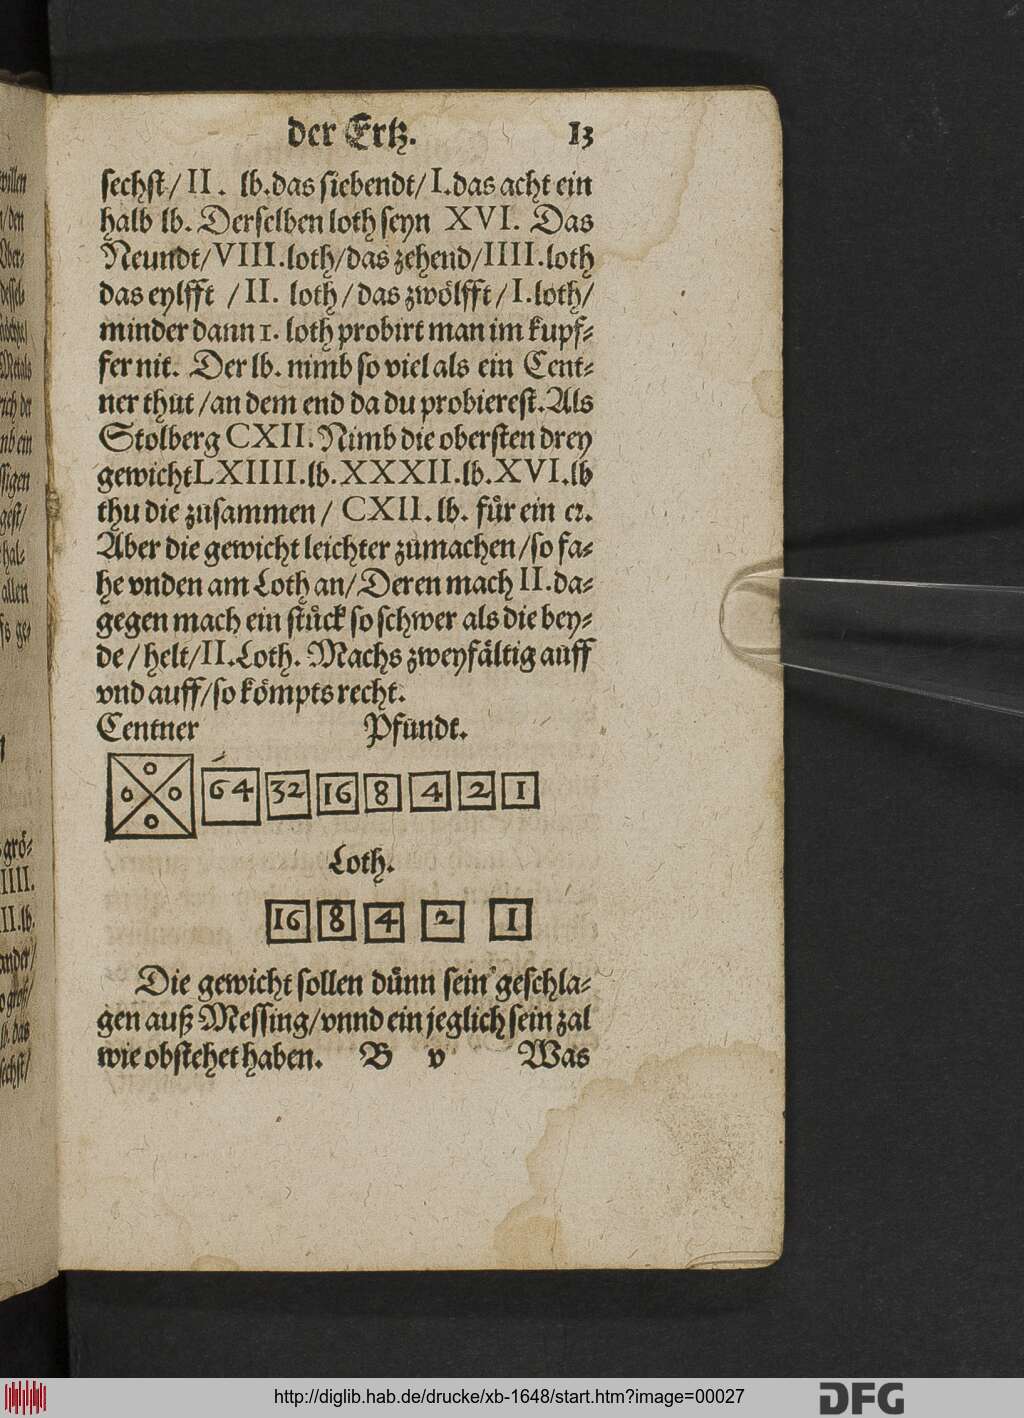 der Ertz. 13
sechst/ II. lb. das siebendt/ I. das acht ein
halb lb. Derselben loth seyn XVI. Das
Neundt/ VIII. loth/ das zehend/ IIII. loth
das eylfft / II. loth / das zwölfft / I. loth/
minder dann 1. loth probirt man im kupf⸗
fer nit. Der lb. nimb so viel als ein Cent⸗
ner thut / an dem end da du probierest. Als
Stolberg CXII. Nimb die obersten drey
gewicht LXIIII. lb. XXXII. lb. XVI. lb
thu die zusammen / CXII. lb. für ein cr.
Aber die gewicht leichter zumachen / so fa⸗
he vnden am Loth an / Deren mach II. da⸗
gegen mach ein stück so schwer als die bey⸗
de / helt / II. Loth. Machs zweyfältig auff
vnd auff / so kömpts recht.
Centner Pfundt.
64 32 16 8 4 2 1
Loth.
16 8 4 2 1
Die gewicht sollen dünn sein geschla⸗
gen auß Messing / vnnd ein jeglich sein zal
wie obstehet haben. B v Was
http://diglib.hab.de/drucke/xb-1648/start.htm?image=00027
DFG